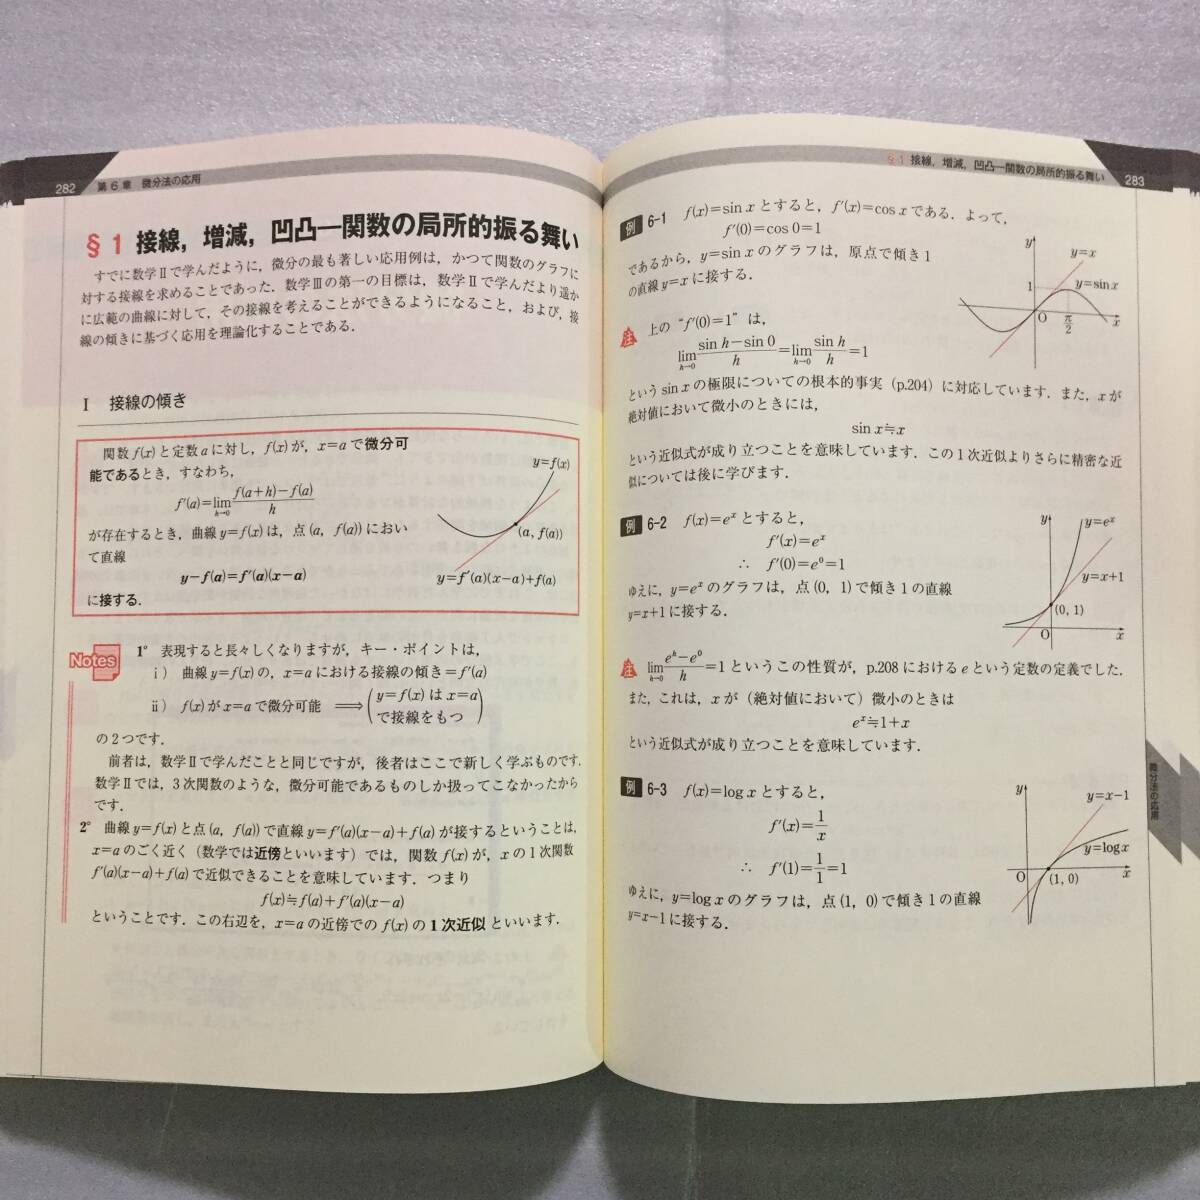 282 第6章 微分法の応用
§1 接線，増減，凹凸―関数の局所的振る舞い
すでに数学Ⅱで学んだように，微分の最も著しい応用例は，かつて関数のグラフに
対する接線を求めることであった．数学Ⅲの第一の目標は，数学Ⅱで学んだより遥か
に広範の曲線に対して，その接線を考えることができるようになること，および，接
線の傾きに基づく応用を理論化することである．
Ⅰ 接線の傾き
関数 f(x) と定数 a に対し，f(x) が，x=a で微分可
能であるとき，すなわち，
f′(a)=lim_{h→0} (f(a+h)−f(a))/h
が存在するとき，曲線 y=f(x) は，点 (a, f(a)) におい
て直線
y−f(a)=f′(a)(x−a)
に接する．
y=f(x)
(a, f(a))
y=f′(a)(x−a)+f(a)
Notes
1° 表現すると長々しくなりますが，キー・ポイントは，
ⅰ) 曲線 y=f(x) の，x=a における接線の傾き=f′(a)
ⅱ) f(x) が x=a で微分可能 ⟹ (y=f(x) は x=a
で接線をもつ)
の2つです．
前者は，数学Ⅱで学んだことと同じですが，後者はここで新しく学ぶものです．
数学Ⅱでは，3次関数のような，微分可能であるものしか扱ってこなかったから
です．
2° 曲線 y=f(x) と点 (a, f(a)) で直線 y=f′(a)(x−a)+f(a) が接するということは，
x=a のごく近く（数学では近傍といいます）では，関数 f(x) が，x の1次関数
f′(a)(x−a)+f(a) で近似できることを意味しています．つまり
f(x)≒f(a)+f′(a)(x−a)
ということです．この右辺を，x=a の近傍での f(x) の1次近似といいます．
§1 接線，増減，凹凸―関数の局所的振る舞い 283
例 6-1 f(x)=sin x とすると，f′(x)=cos x である．よって，
f′(0)=cos 0=1
であるから，y=sin x のグラフは，原点で傾き1
の直線 y=x に接する．
y
y=x
1
y=sin x
O
π/2
x
注 上の “f′(0)=1” は，
lim_{h→0} (sin h−sin 0)/h=lim_{h→0} (sin h)/h=1
という sin x の極限についての根本的事実（p.204）に対応しています．また，x が
絶対値において微小のときには，
sin x≒x
という近似式が成り立つことを意味しています．この1次近似よりさらに精密な近
似については後に学びます．
例 6-2 f(x)=eˣ とすると，
f′(x)=eˣ
∴ f′(0)=e⁰=1
ゆえに，y=eˣ のグラフは，点(0, 1)で傾き1の直線
y=x+1に接する．
y
y=eˣ
y=x+1
(0, 1)
O
x
注 lim_{h→0} (eʰ−e⁰)/h=1 というこの性質が，p.208における e という定数の定義でした．
また，これは，x が（絶対値において）微小のときは
eˣ≒1+x
という近似式が成り立つことを意味しています．
例 6-3 f(x)=log x とすると，
f′(x)=1/x
∴ f′(1)=1/1=1
ゆえに，y=log x のグラフは，点(1, 0)で傾き1の直線
y=x−1に接する．
y
y=x−1
y=log x
O
(1, 0)
x
微分法の応用